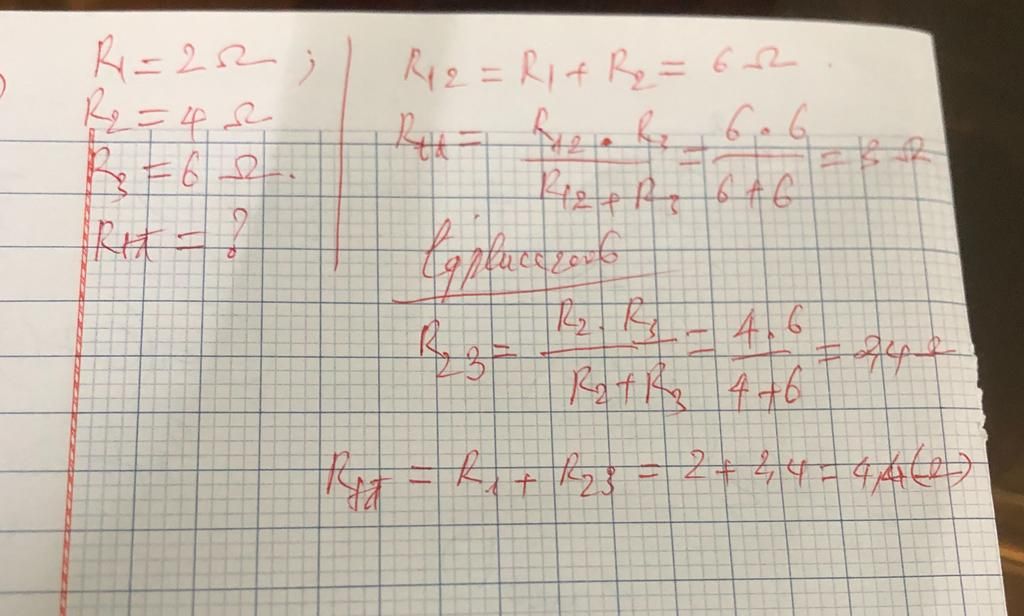 R1 = 2 Ω ;
R2 = 4 Ω
R3 = 6 Ω.
Rtđ = ?
R12 = R1 + R2 = 6 Ω .
Rtđ = R12 . R3 / R12 + R3 = 6 . 6 / 6 + 6 = 3 Ω
R23 = R2 . R3 / R2 + R3 = 4 . 6 / 4 + 6 = 2,4 Ω
Rtđ = R1 + R23 = 2 + 2,4 = 4,4 (Ω)